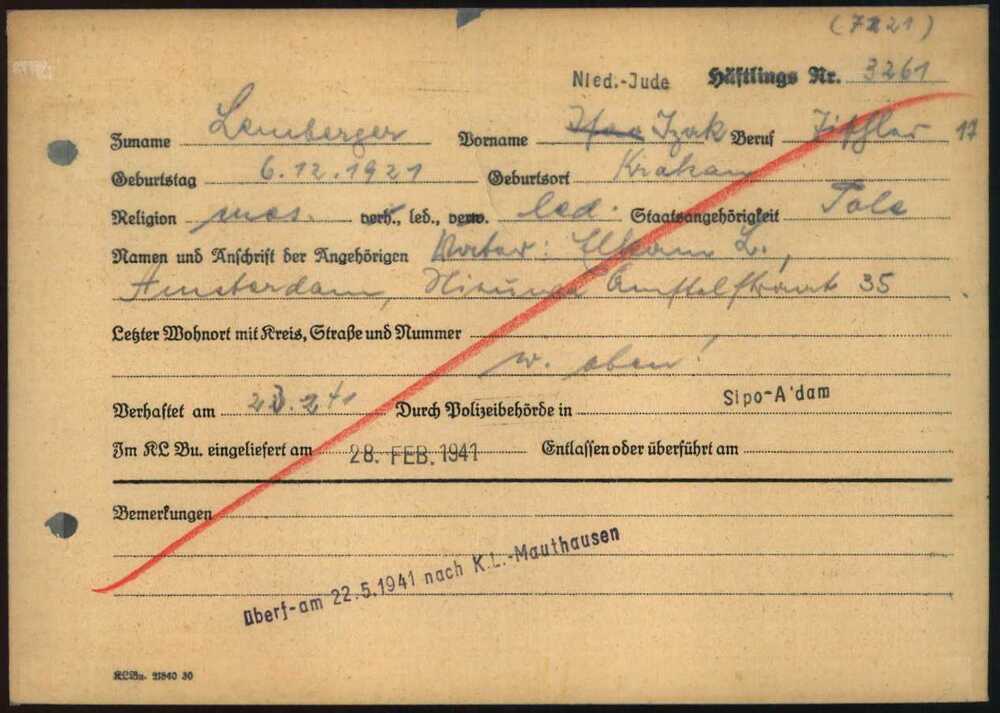 (7221)
Nied.-Jude Häftlings Nr. 3261
Zuname Lemberger Vorname Izak Beruf Tischler 17
Geburtstag 6.12.1921 Geburtsort Krakau
Religion mos. verh., led., verw. led. Staatsangehörigkeit Pole
Namen und Anschrift der Angehörigen Vater: Elkan L.,
Amsterdam, Amstelstraat 35
Letzter Wohnort mit Kreis, Straße und Nummer
w. oben!
Verhaftet am 2.41 Durch Polizeibehörde in Sipo-A'dam
Im KL Bu. eingeliefert am 28. FEB. 1941 Entlassen oder überführt am
Bemerkungen
überf-am 22.5.1941 nach K.L.-Mauthausen
KLBu. 21840 30